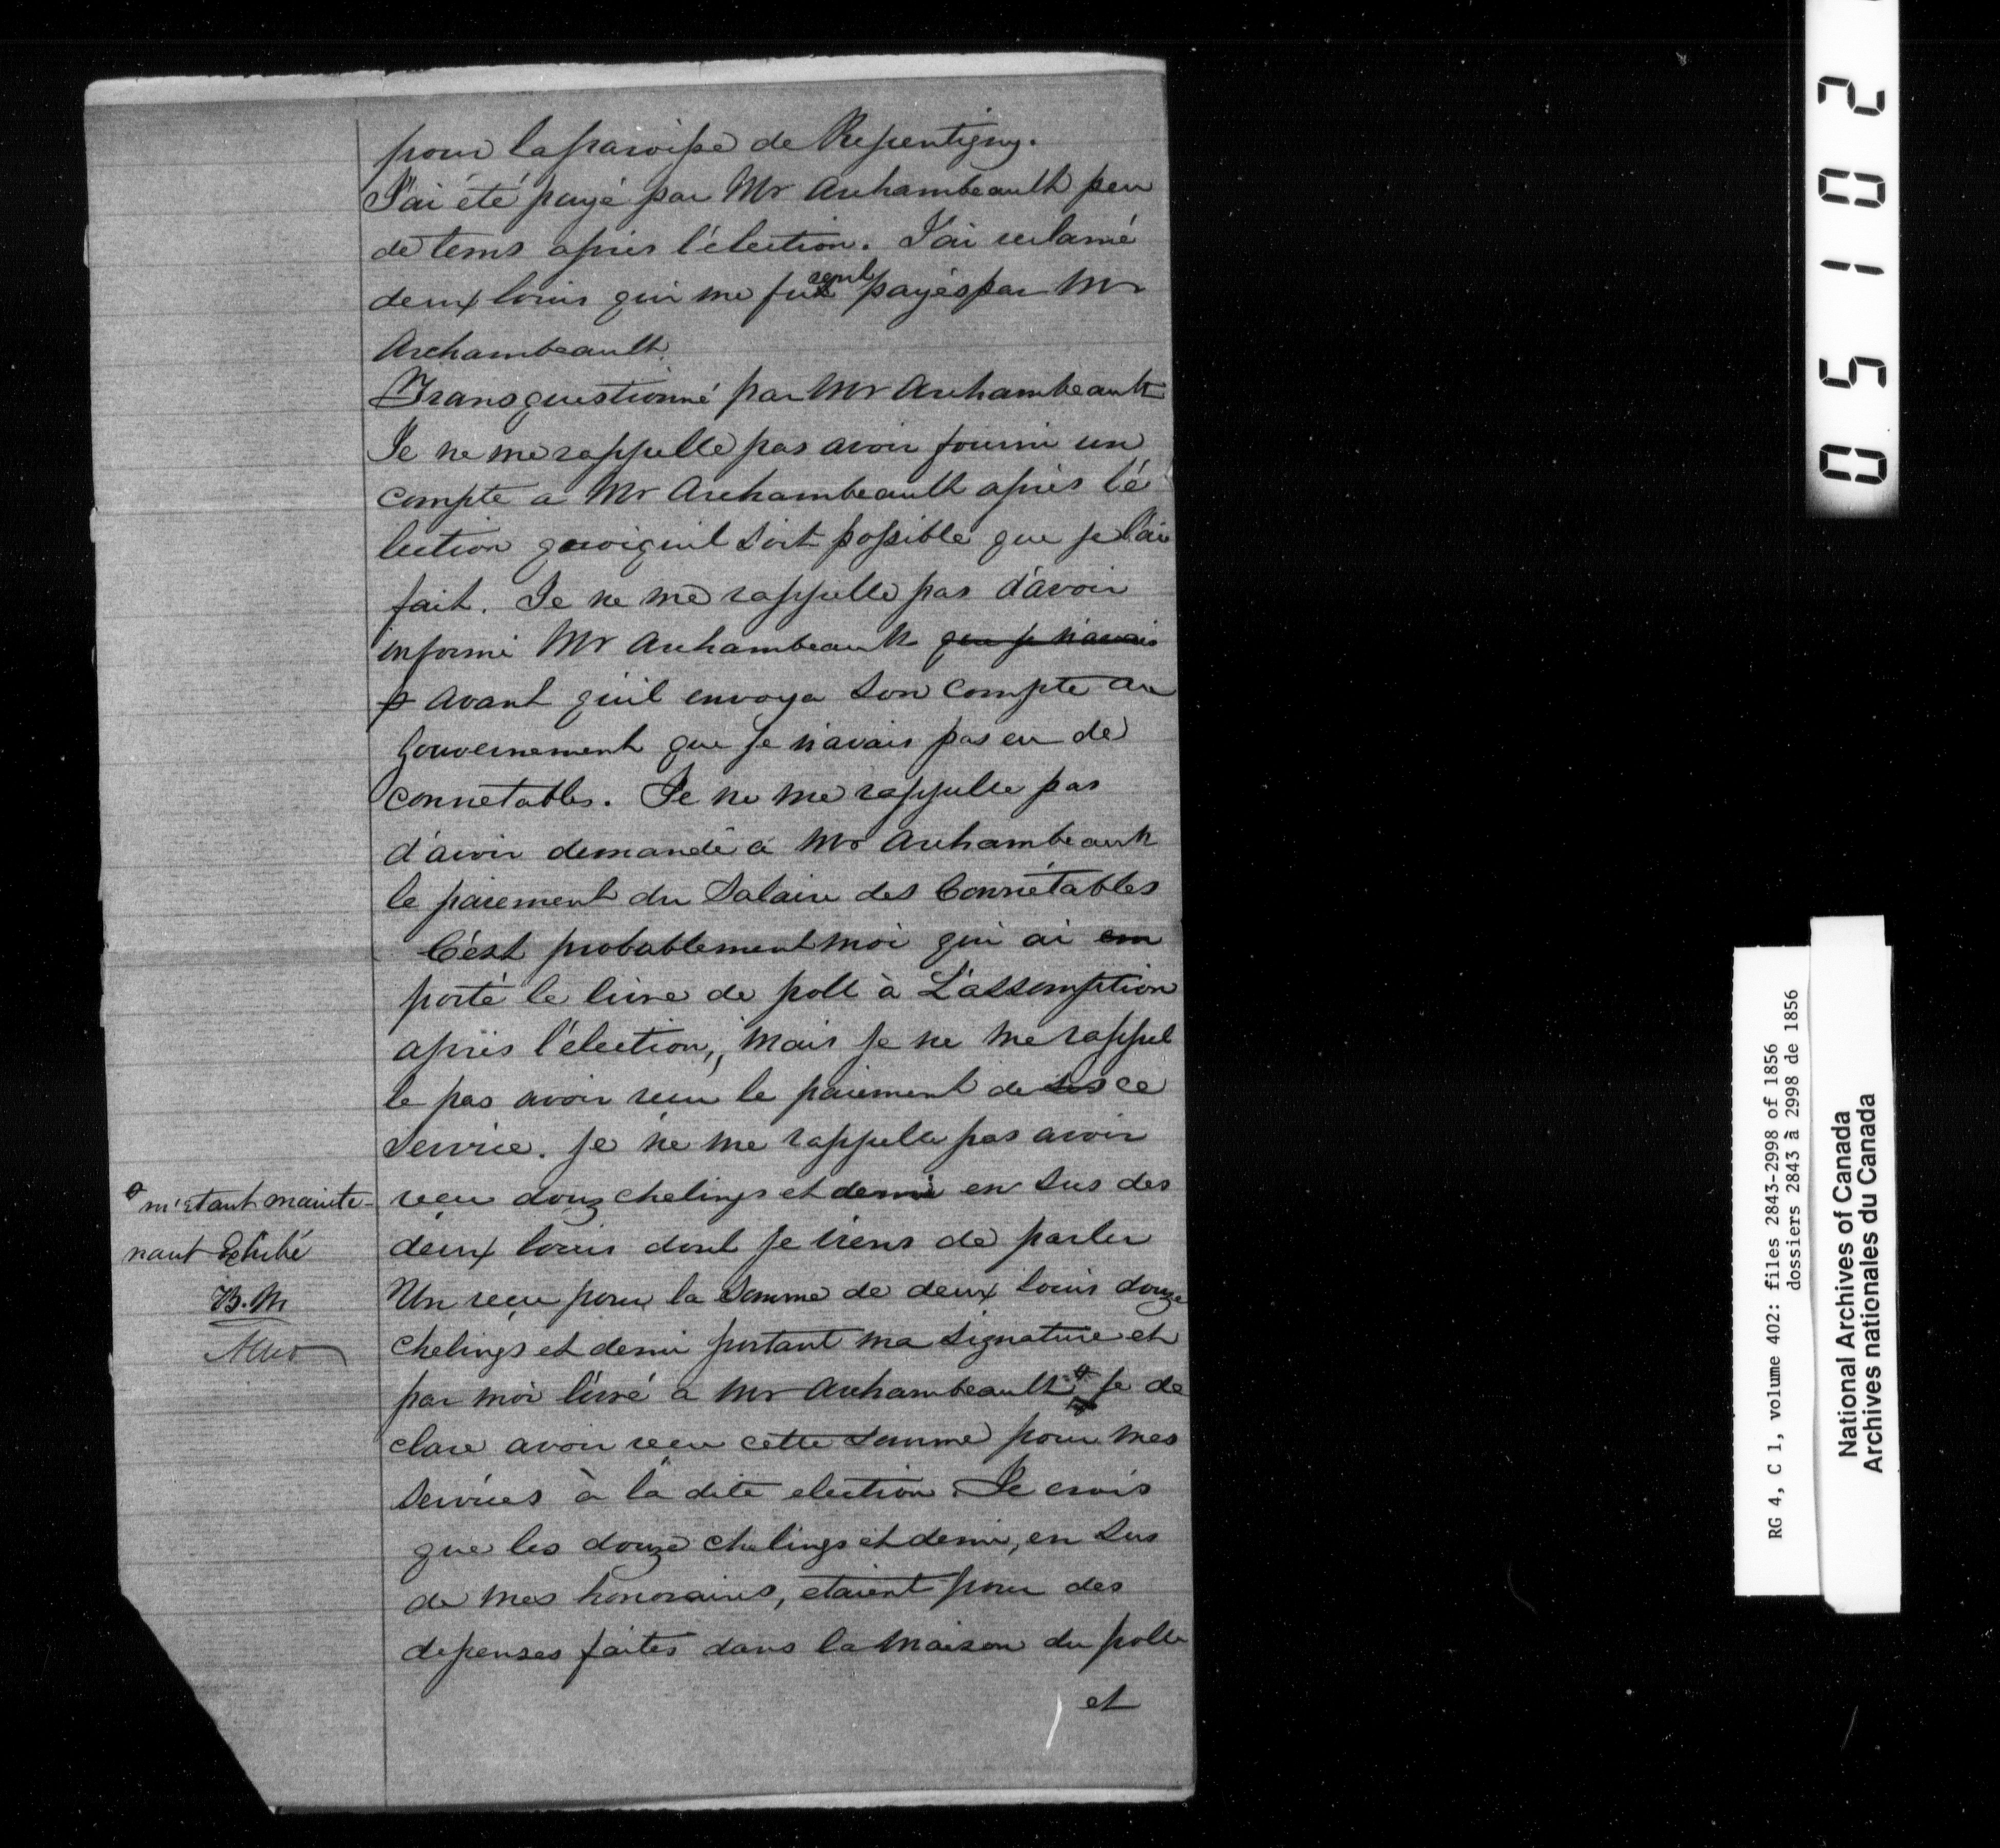 pour la paroisse de Repentigny.
J'ai été payé par Mr Archambeault peu
de tems après l'élection. J'ai reclamé
deux louis qui me furent payés par Mr
Archambeault.
Transquestionné par Mr Archambeault
Je ne me rappelle pas avoir fourni un
compte a Mr Archambeault après l'é
lection quoiqu'il soit possible que je l'ai
fait. Je ne me rappelle pas d'avoir
informé Mr Archambeault que je n'avais
p avant qu'il envoya son compte au
Gouvernement que je n'avais pas eu de
connetables. Je ne me rappelle pas
d'avoir demandé à Mr Archambeault
le paiement du salaire des Connétables
C'est probablement moi qui ai em
porté le livre de poll à L'assomption
après l'élection, mais je ne me rappel
le pas avoir reçu le paiement de ses ce
service. je ne me rappelle pas avoir
reçu douz chelings et demi en sus des
deux louis dont je viens de parler
Un reçu pour la somme de deux louis douze
chelings et demi portant ma signature et
par moi livré a Mr Archambeault je de
clare avoir reçu cette somme pour mes
services à la dite election Je crois
que les douze chelings et demi, en sus
de mes honoraires, etaient pour des
depenses faites dans la maison du polle
et
m'étant mainte-
nant Exhibé
B.M
05102
RG 4, C 1, volume 402: files 2843-2998 of 1856
dossiers 2843 à 2998 de 1856
National Archives of Canada
Archives nationales du Canada